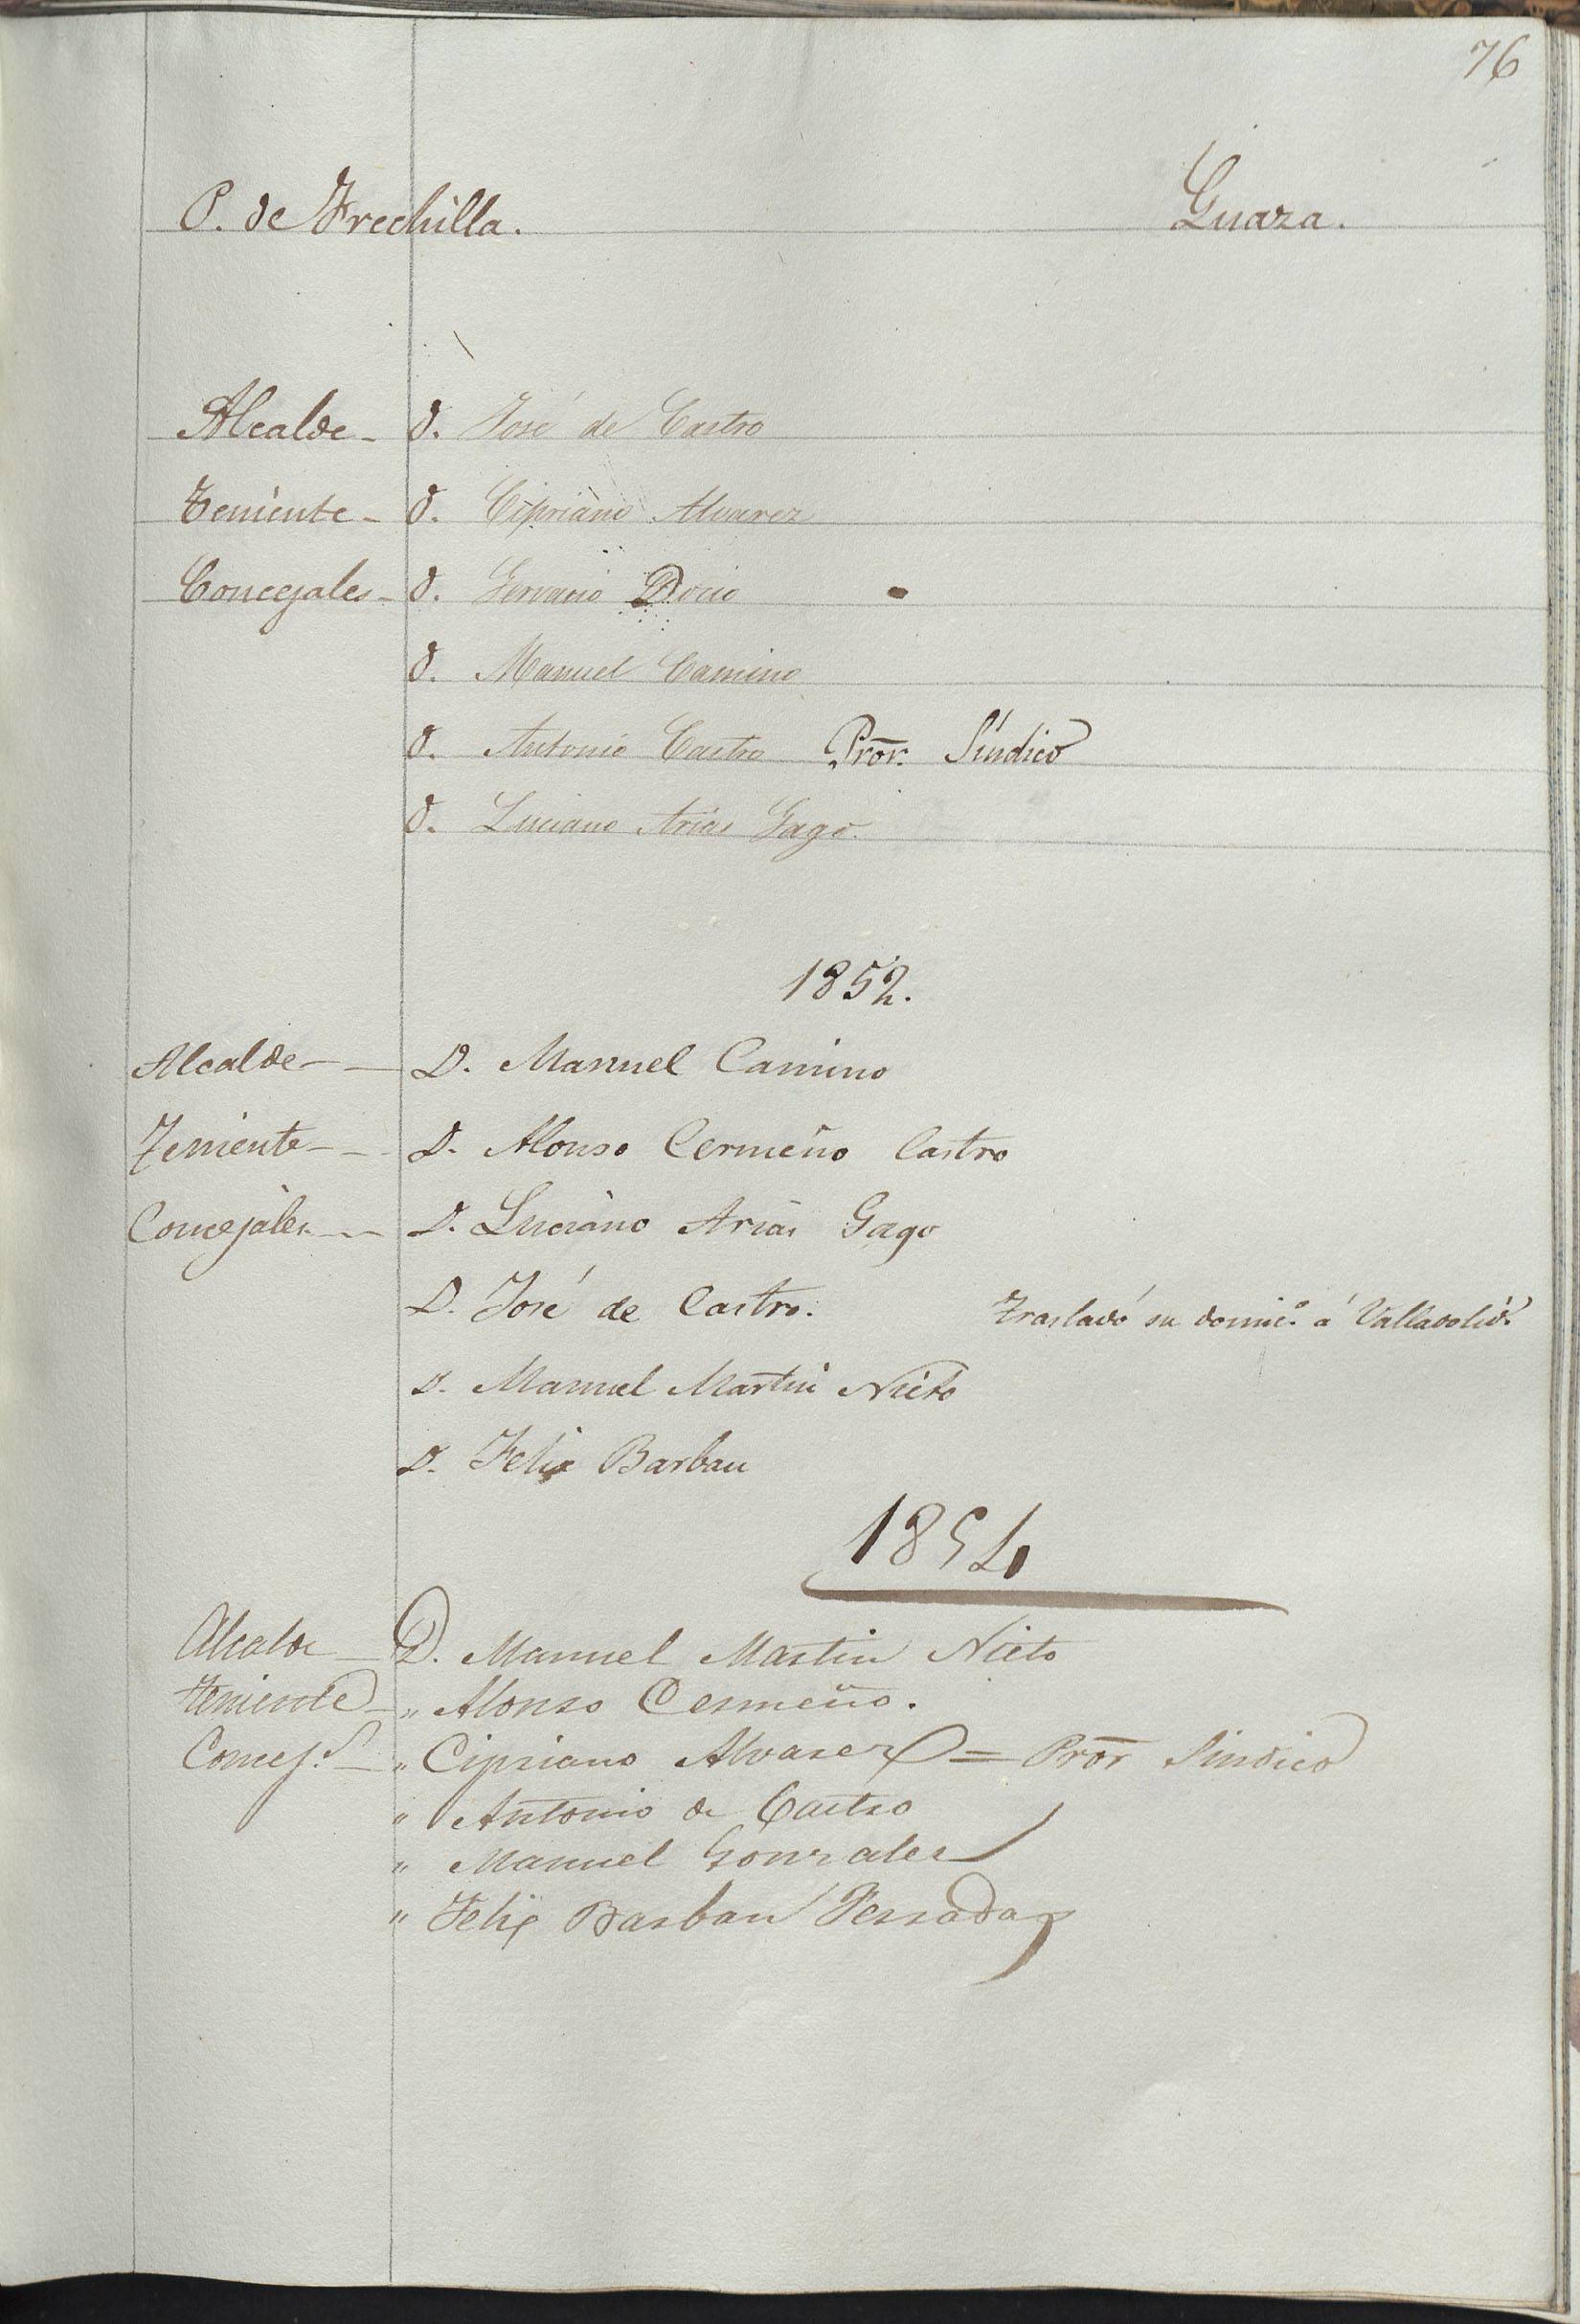 76
P. de Frechilla. Guaza.
Alcalde - D. José de Castro
Teniente - D. Cipriano Alvarez
Concejales - D. Gervacio Docio
D. Manuel Camino
D. Antonio Castro Pror. Síndico
D. Luciano Arias Gago.
1852.
Alcalde - - D. Manuel Camino
Teniente - - D. Alonso Cermeño Castro
Concejales - - D. Luciano Arias Gago
D. José de Castro. Trasladó su domic.º á Valladolid.
D. Manuel Martin Nieto
D. Felix Barban
1854
Alcalde - D. Manuel Martin Nieto
Teniente - " Alonso Cermeño.
Concej.s - " Cipriano Alvarez = Pror Sindico
" Antonio de Castro
" Manuel Gonzalez
" Felix Barban Terradas